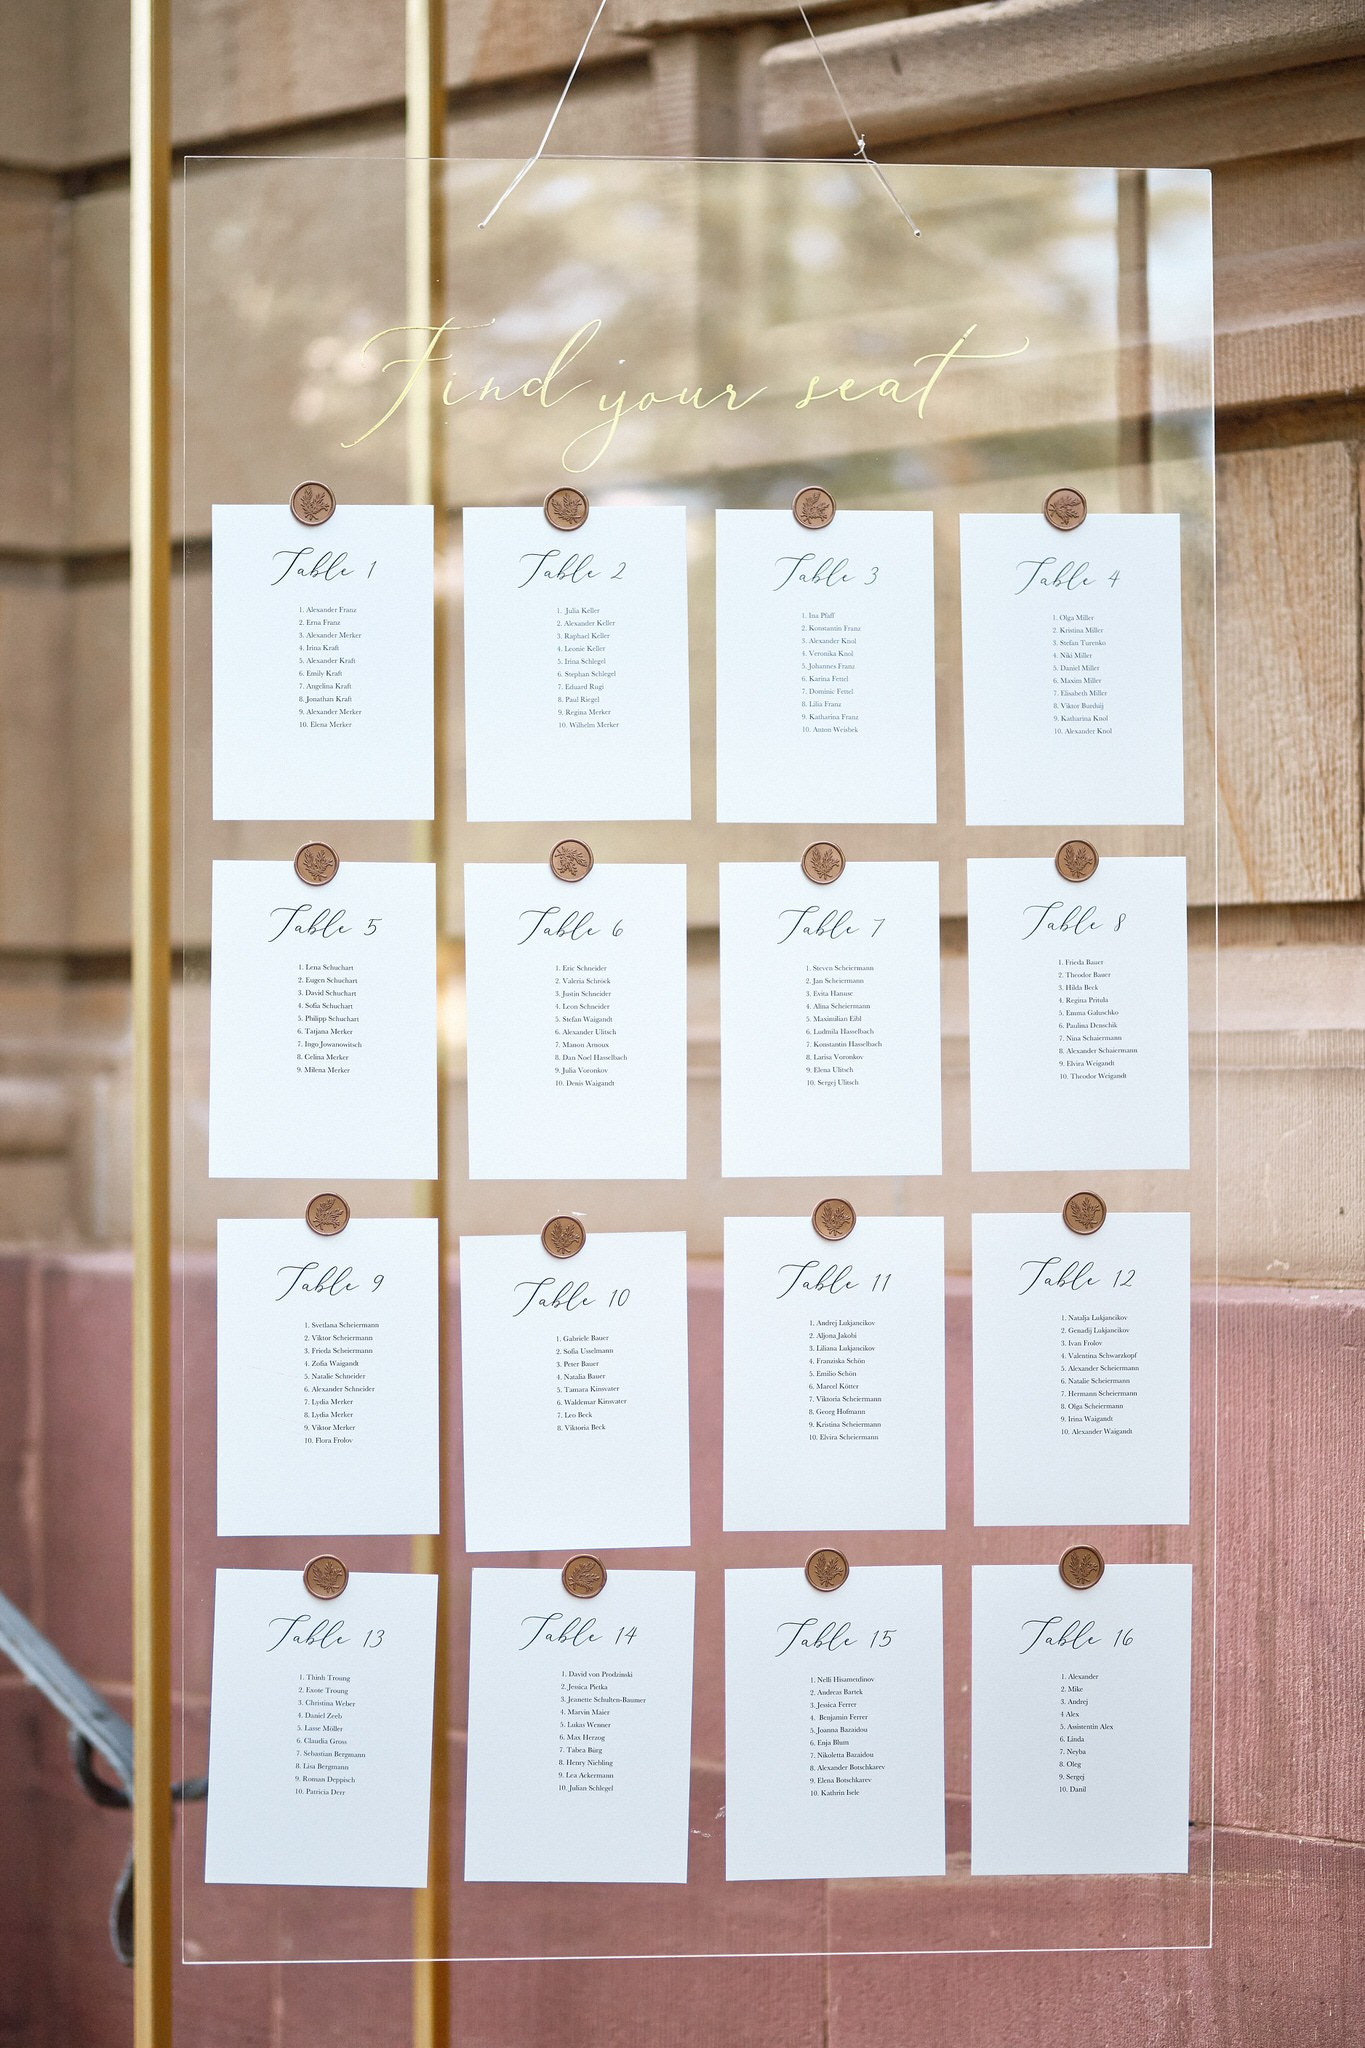 Find your seat
Table 1
1. Alexander Franz
2. Erna Franz
3. Alexander Merker
4. Irina Kraft
5. Alexander Kraft
6. Emily Kraft
7. Angelina Kraft
8. Jonathan Kraft
9. Alexander Merker
10. Elena Merker
Table 2
1. Julia Keller
2. Alexander Keller
3. Raphael Keller
4. Leonie Keller
5. Irina Schlegel
6. Stephan Schlegel
7. Eduard Rugi
8. Paul Riegel
9. Regina Merker
10. Wilhelm Merker
Table 3
1. Ina Pfaff
2. Konstantin Franz
3. Alexander Knol
4. Veronika Knol
5. Johannes Franz
6. Karina Fettel
7. Dominic Fettel
8. Lilia Franz
9. Katharina Franz
10. Anton Weisbek
Table 4
1. Olga Miller
2. Kristina Miller
3. Stefan Turenko
4. Niki Miller
5. Daniel Miller
6. Maxim Miller
7. Elisabeth Miller
8. Viktor
9. Katharina Knol
10. Alexander Knol
Table 5
1. Lena Schuchart
2. Eugen Schuchart
3. David Schuchart
4. Sofia Schuchart
5. Philipp Schuchart
6. Tatjana Merker
7. Ingo Jowanowitsch
8. Celina Merker
9. Milena Merker
Table 6
1. Eric Schneider
2. Valeria Schröck
3. Justin Schneider
4. Leon Schneider
5. Stefan Waigandt
6. Alexander Ulitsch
7. Manon Arnoux
8. Dan Noel Hasselbach
9. Julia Voronkov
10. Denis Waigandt
Table 7
1. Steven Scheiermann
2. Jan Scheiermann
3. Evita Hanuse
4. Alina Scheiermann
5. Maximilian Eibl
6. Ludmila Hasselbach
7. Konstantin Hasselbach
8. Larisa Voronkov
9. Elena Ulitsch
10. Sergej Ulitsch
Table 8
1. Frieda Bauer
2. Theodor Bauer
3. Hilda Beck
4. Regina Pritula
5. Emma Galuschko
6. Paulina Denschik
7. Nina Schaiermann
8. Alexander Schaiermann
9. Elvira Weigandt
10. Theodor Weigandt
Table 9
1. Svetlana Scheiermann
2. Viktor Scheiermann
3. Frieda Scheiermann
4. Zofia Waigandt
5. Natalie Schneider
6. Alexander Schneider
7. Lydia Merker
8. Lydia Merker
9. Viktor Merker
10. Flora Frolov
Table 10
1. Gabriele Bauer
2. Sofia Usselmann
3. Peter Bauer
4. Natalia Bauer
5. Tamara Kinsvater
6. Waldemar Kinsvater
7. Leo Beck
8. Viktoria Beck
Table 11
1. Andrej Lukjancikov
2. Aljona Jakobi
3. Liliana Lukjancikov
4. Franziska Schön
5. Emilio Schön
6. Marcel Kötter
7. Viktoria Scheiermann
8. Georg Hofmann
9. Kristina Scheiermann
10. Elvira Scheiermann
Table 12
1. Natalja Lukjancikov
2. Genadij Lukjancikov
3. Ivan Frolov
4. Valentina Schwarzkopf
5. Alexander Scheiermann
6. Natalie Scheiermann
7. Hermann Scheiermann
8. Olga Scheiermann
9. Irina Waigandt
10. Alexander Waigandt
Table 13
1. Thinh Troung
2. Exote Troung
3. Christina Weber
4. Daniel Zeeb
5. Lasse Möller
6. Claudia Gross
7. Sebastian Bergmann
8. Lisa Bergmann
9. Roman Deppisch
10. Patricia Derr
Table 14
1. David von Prodzinski
2. Jessica Pietka
3. Jeanette Schulten-Baumer
4. Marvin Maier
5. Lukas Wenner
6. Max Herzog
7. Tabea Bürg
8. Henry Niebling
9. Lea Ackermann
10. Julian Schlegel
Table 15
1. Nelli Hisametdinov
2. Andreas Bartek
3. Jessica Ferrer
4. Benjamin Ferrer
5. Joanna Bazaidou
6. Enja Blum
7. Nikoletta Bazaidou
8. Alexander Botschkarev
9. Elena Botschkarev
10. Kathrin Isele
Table 16
1. Alexander
2. Mike
3. Andrej
4 Alex
5. Assistentin Alex
6. Linda
7. Neyba
8. Oleg
9. Sergej
10. Danil